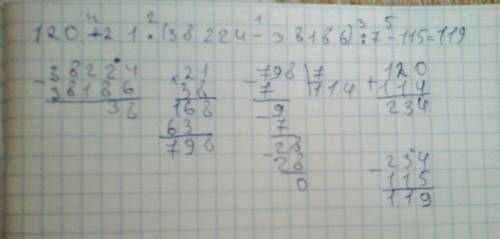 4 2 1 3 5
120+21:(38224-38186):7-115=119
-38224
38186
38
×21
38
168
63
798
-798 | 7
7 114
-9
7
-28
28
0
+120
114
234
-234
115
119